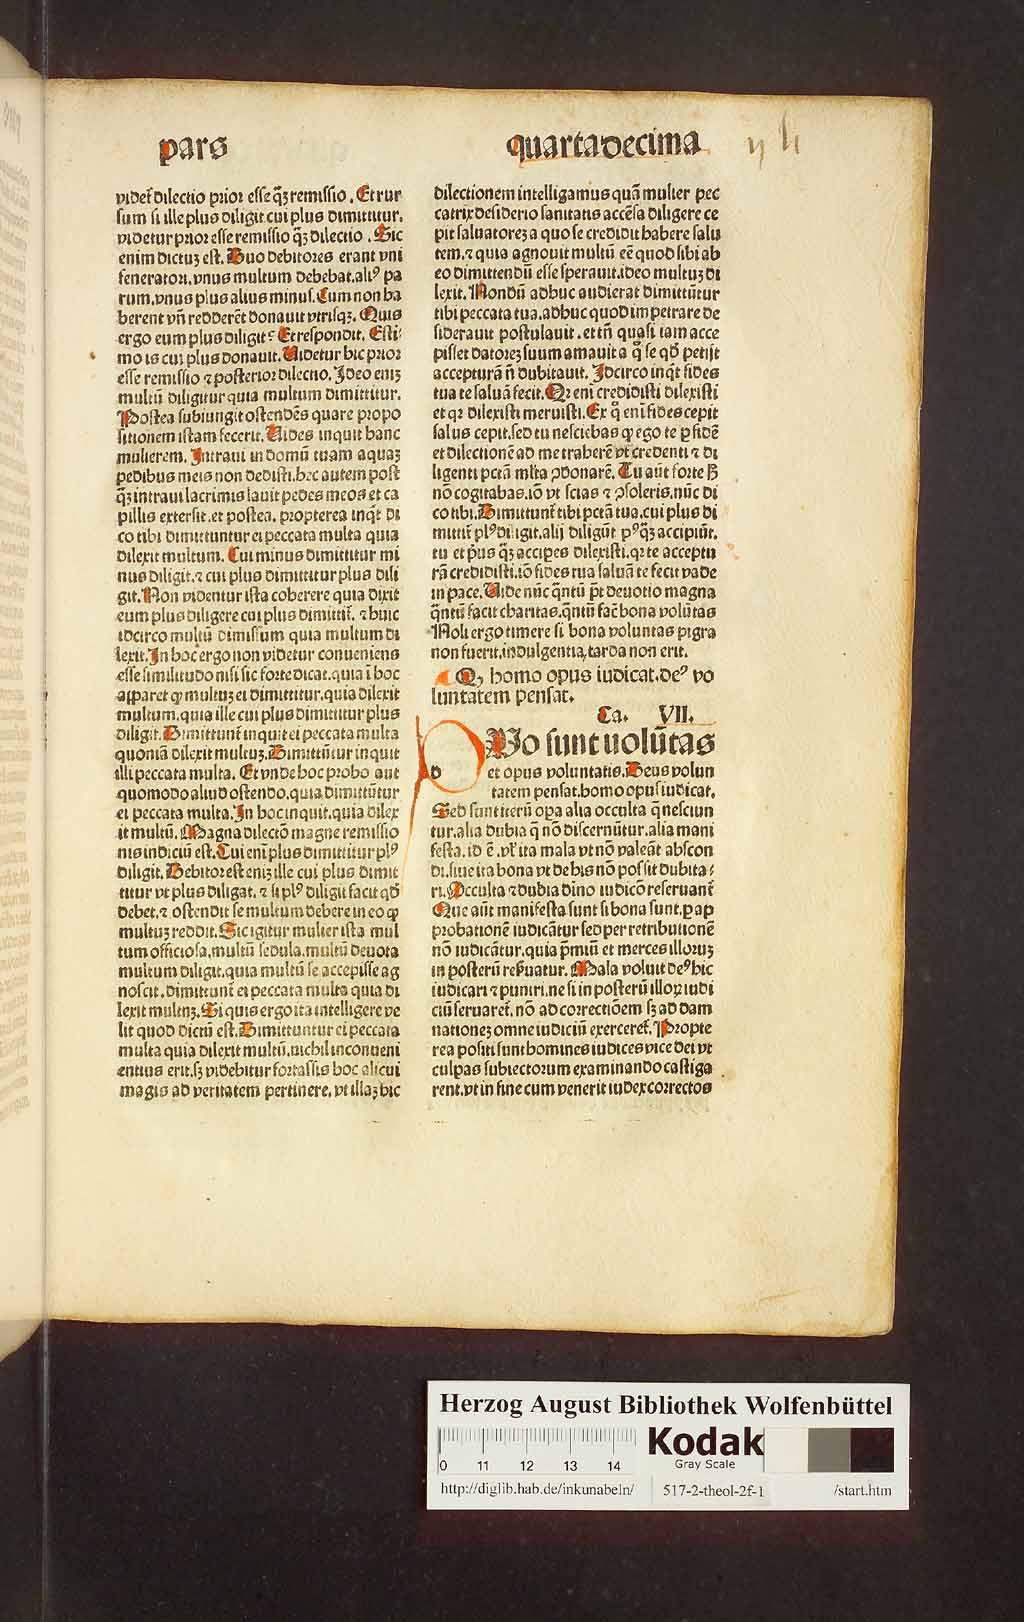 pars
quartadecima
videt᷑ dilectio prior esse q̄ꝫ remissio. Et rur
sum si ille plus diligit cui plus dimittitur.
videtur prior esse remissio q̄ꝫ dilectio. Sic
enim dictuꝫ est. Duo debitores erant vni
feneratori. vnus multum debebat. aliꝰ pa
rum. vnus plus alius minus. Cum non ha
berent vn̄ redderēt donauit vtrisqꝫ. Quis
ergo eum plus diligit? Et respondit. Esti⸗
mo is cui plus donauit. Uidetur hic prior
esse remissio ⁊ posterior dilectio. Ideo eniꝫ
multū diligitur quia multum dimittitur.
Postea subiungit ostendēs quare propo
sitionem istam fecerit. Uides inquit hanc
mulierem. Intraui in domū tuam aquaꝫ
pedibus meis non dedisti. hec autem post
q̄ꝫ intraui lacrimis lauit pedes meos et ca
pillis extersit. et postea. propterea inq̄t di
co tibi dimittuntur ei peccata multa quia
dilexit multum. Cui minus dimittitur mi
nus diligit. ⁊ cui plus dimittitur plus dili
git. Non videntur ista coherere quia dixit
eum plus diligere cui plus dimittit᷑. ⁊ huic
idcirco multū dimissum quia multum di
lexit. In hoc ergo non videtur conueniens
esse similitudo nisi sic forte dicat. quia ī hoc
apparet ꝙ multuꝫ ei dimittitur. quia dilexit
multum. quia ille cui plus dimittitur plus
diligit. Dimittunt᷑ inquit ei peccata multa
quoniā dilexit multuꝫ. Dimittūtur inquit
illi peccata multa. Et vnde hoc probo aut
quomodo aliud ostendo. quia dimittūtur
ei peccata multa. In hoc inquit. quia dilex
it multū. Magna dilectō magne remissio
nis indiciū est. Cui eni᷑ plus dimittitur plꝰ
diligit. Debitor est eniꝫ ille cui plus dimit
titur vt plus diligat. ⁊ si plꝰ diligit facit qd̄
debet. ⁊ ostendit se multum debere in eo ꝙ
multuꝫ reddit. Sic igitur mulier ista mul
tum officiosa. multū sedula. multū deuota
multum diligit. quia multū se accepisse ag
noscit. dimittunt᷑ ei peccata multa quia di
lexit multuꝫ. Si quis ergo ita intelligere ve
lit quod dictū est. Dimittuntur ei peccata
multa quia dilexit multū. nichil inconueni
entius erit. sꝫ videbitur fortassis hoc alicui
magis ad veritatem pertinere. vt illaꝫ hic
dilectionem intelligamus quā mulier pec
catrix desiderio sanitatis accēsa diligere ce
pit saluatoreꝫ a quo se credidit habere salu
tem. ⁊ quia agnouit multū eē quod sibi ab
eo dimittendū esse sperauit. ideo multuꝫ di
lexit. Nondū adhuc audierat dimittūtur
tibi peccata tua. adhuc quod impetrare de
siderauit postulauit. et tn̄ quasi iam acce
pisset datoreꝫ suum amauit a q̊ se qd̄ petijt
accepturā n̄ dubitauit. Idcirco inq̄t fides
tua te saluā fecit. Qꝛ eni᷑ credidisti dilexisti
et qꝛ dilexisti meruisti. Ex q̊ eni᷑ fides cepit
salus cepit. sed tu nesciebas ꝙ ego te ꝑ fidē
et dilectionē ad me traherē vt credenti ⁊ di
ligenti pctā mlta ꝯdonarē. Tu aūt forte ß
nō cogitabas. iō vt scias ⁊ ꝯsoleris. nūc di
co tibi. Dimittunt᷑ tibi pctā tua. cui plus di
mittit᷑ plꝰ diligit. alij diligūt pꝰq̄ꝫ accipiūt.
tu et prius q̄ꝫ accipes dilexisti. qꝛ te acceptu
rā credidisti. iō fides tua saluā te fecit vade
in pace. Uide nūc q̄ntū pt̄ deuotio magna
q̄ntū facit charitas. q̄ntū fac̄ bona volūtas
Noli ergo timere si bona voluntas pigra
non fuerit. indulgentia tarda non erit.
Qꝫ homo opus iudicat. deꝰ vo
luntatem pensat.
Ca. VII.
d
Uo sunt uolūtas
et opus voluntatis. Deus volun
tatem pensat. homo opus iudicat.
Sed sunt iterū opa alia occulta q̄ nesciun
tur. alia dubia q̄ nō discernūtur. alia mani
festa. id ē. vl᷑ ita mala vt nō valeāt abscon
di. siue ita bona vt de his nō possit dubita⸗
ri. Occulta ⁊ dubia diuo iudicō reseruant᷑
Que aūt manifesta sunt si bona sunt. ꝑ ap
probationē iudicātur sed per retributionē
nō iudicātur. quia p̄miū et merces illoruꝫ
in posterū reſuatur. Mala voluit deꝰ hic
iudicari ⁊ puniri. ne si in posterū illoꝝ iudi
ciū seruaret᷑. nō ad correctiōem sꝫ ad dam
nationeꝫ omne iudiciū exerceret᷑. Propte
rea positi sunt homines iudices vice dei vt
culpas subiectorum examinando castiga
rent. vt in fine cum venerit iudex correctos
Herzog August Bibliothek Wolfenbüttel
Kodak
Gray Scale
0 11 12 13 14
http://diglib.hab.de/inkunabeln/ 517-2-theol-2f-1 /start.htm